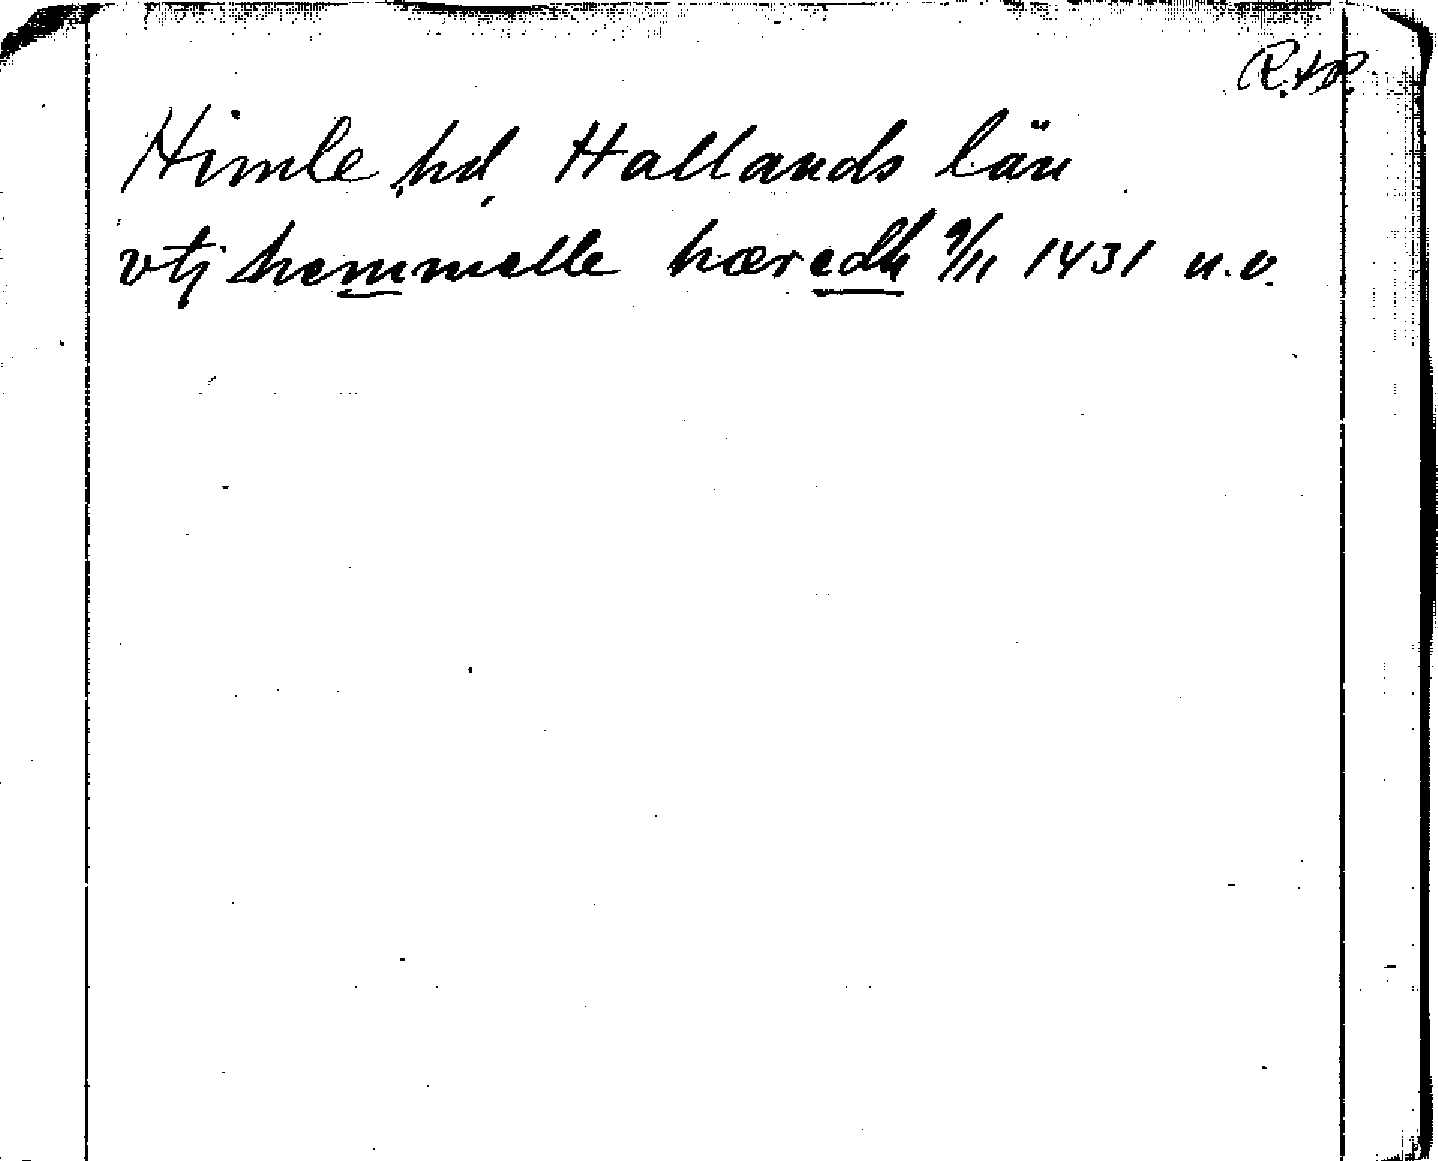 R.A.P.
Himle hd, Hallands län
vtj hemmelle hæredh 9/11 1431 u.v.